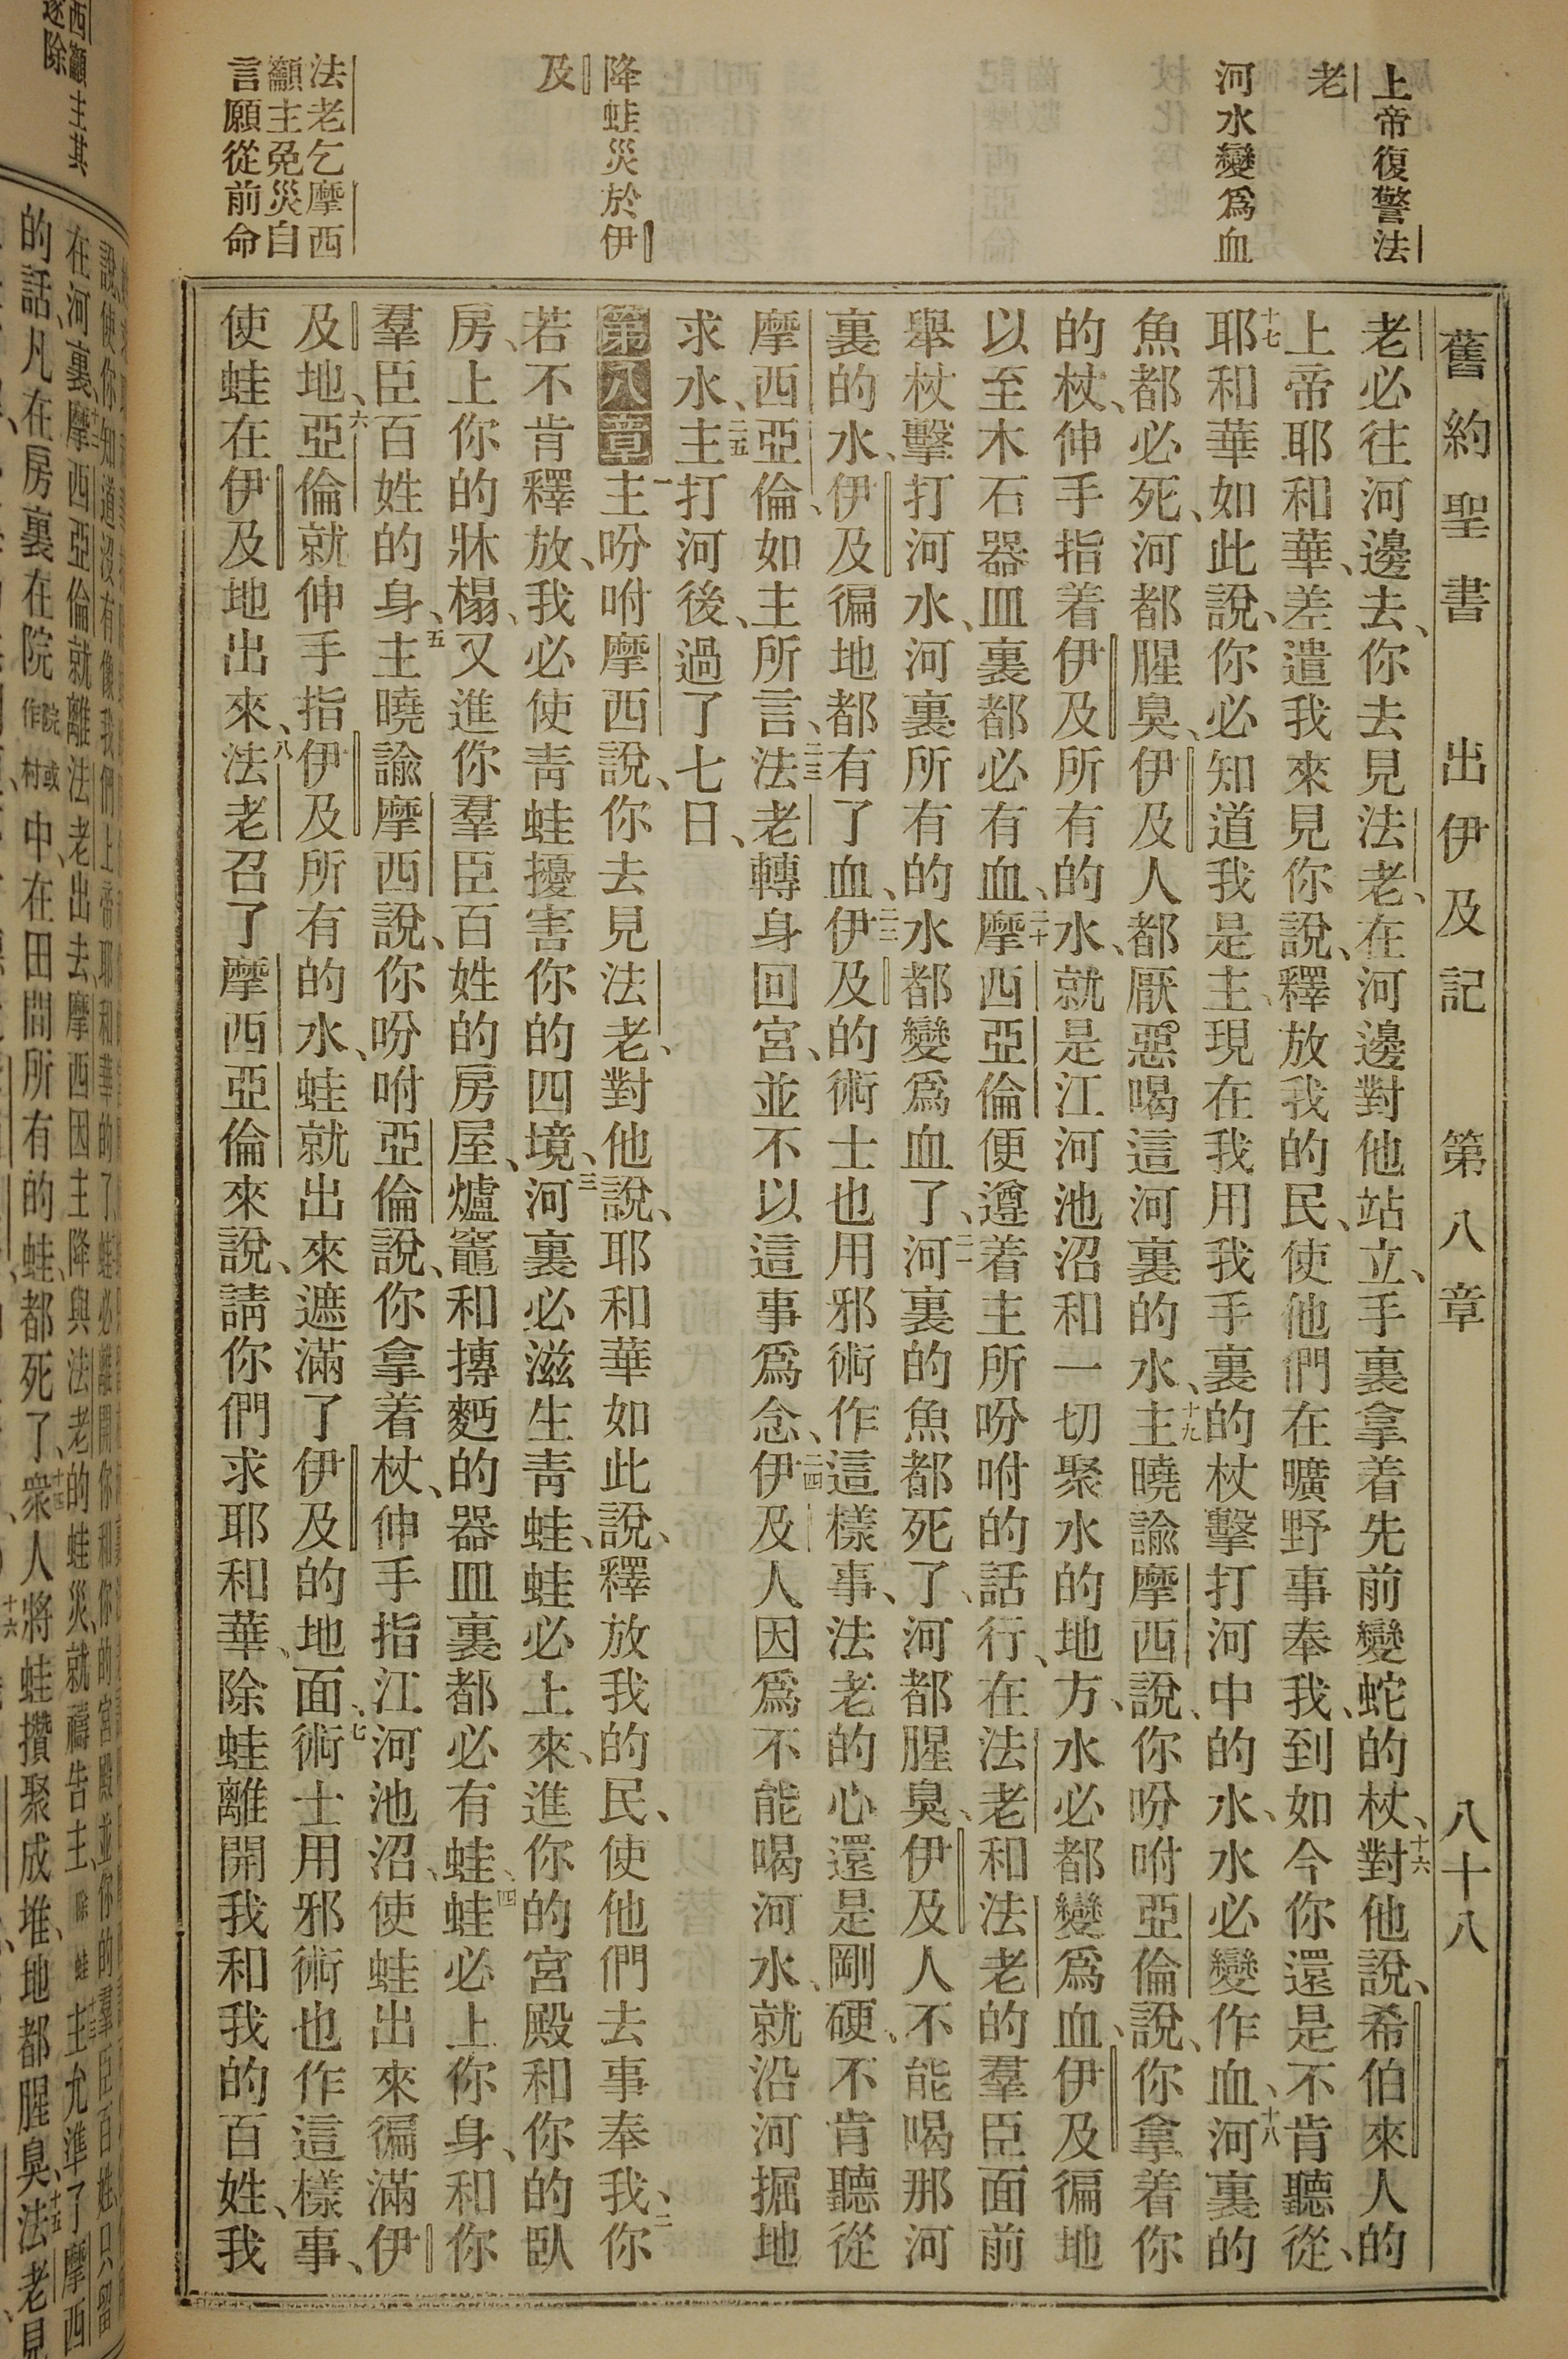 上帝復警法
老
河水變爲血
降蛙災於伊
及
法老乞摩西
籲主免災自
言願從前命
舊約聖書 出伊及記 第八章 八十八
老必往河邊去、你去見法老、在河邊對他站立、手裏拿着先前變蛇的杖、十六對他說、希伯來人的
上帝耶和華、差遣我來見你說、釋放我的民、使他們在曠野事奉我、到如今你還是不肯聽從、
十七耶和華如此說、你必知道我是主、現在我用我手裏的杖擊打河中的水、水必變作血、十八河裏的
魚都必死、河都腥臭、伊及人都厭惡喝這河裏的水、十九主曉諭摩西說、你吩咐亞倫說、你拿着你
的杖、伸手指着伊及所有的水、就是江河池沼和一切聚水的地方、水必都變爲血、伊及徧地
以至木石器皿裏都必有血、二十摩西亞倫便遵着主所吩咐的話行、在法老和法老的羣臣面前
舉杖擊打河水、河裏所有的水都變爲血了、二一河裏的魚都死了、河都腥臭、伊及人不能喝那河
裏的水、伊及徧地都有了血、二二伊及的術士也用邪術作這樣事、法老的心還是剛硬、不肯聽從
摩西亞倫、如主所言、二三法老轉身回宮、並不以這事爲念、二四伊及人因爲不能喝河水、就沿河掘地
求水、二五主打河後、過了七日、
第八章 一主吩咐摩西說、你去見法老、對他說、耶和華如此說、釋放我的民、使他們去事奉我、二你
若不肯釋放、我必使靑蛙擾害你的四境、三河裏必滋生靑蛙、蛙必上來、進你的宮殿和你的臥
房、上你的牀榻、又進你羣臣百姓的房屋、爐竈和摶麪的器皿裏都必有蛙、四蛙必上你身、和你
羣臣百姓的身、五主曉諭摩西說、你吩咐亞倫說、你拿着杖、伸手指江河池沼、使蛙出來徧滿伊
及地、六亞倫就伸手指伊及所有的水、蛙就出來遮滿了伊及的地面、七術士用邪術也作這樣事、
使蛙在伊及地出來、八法老召了摩西亞倫來說、請你們求耶和華、除蛙離開我和我的百姓、我
西籲主其
說、使你知道沒有像我們上帝耶和華的了、
在河裏、十二摩西亞倫就離法老出去、摩西因主降與法老的蛙災、就禱告主、除蛙十三主允準了摩西
的話、凡在房裏在院院或作村中、在田間所有的蛙、都死了、十四衆人將蛙攢聚成堆、地都腥臭、十五法老見